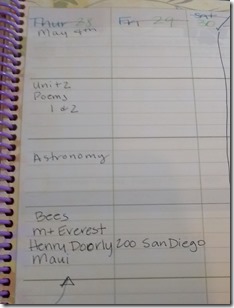 Thur 28 Fri 29 Sat 30
May 4th
Unit 2
Poems
1 & 2
Astronomy
Bees
mt Everest
Henry Doorly Zoo San Diego
Maui